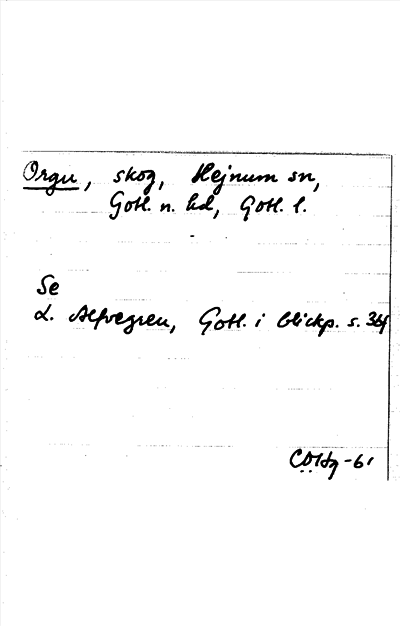 Orgu, skog, Hejnum sn,
Gotl. n. hd, Gotl. l.
Se
L. Alfvegren, Gotl. i blickp. s. 34f
-61